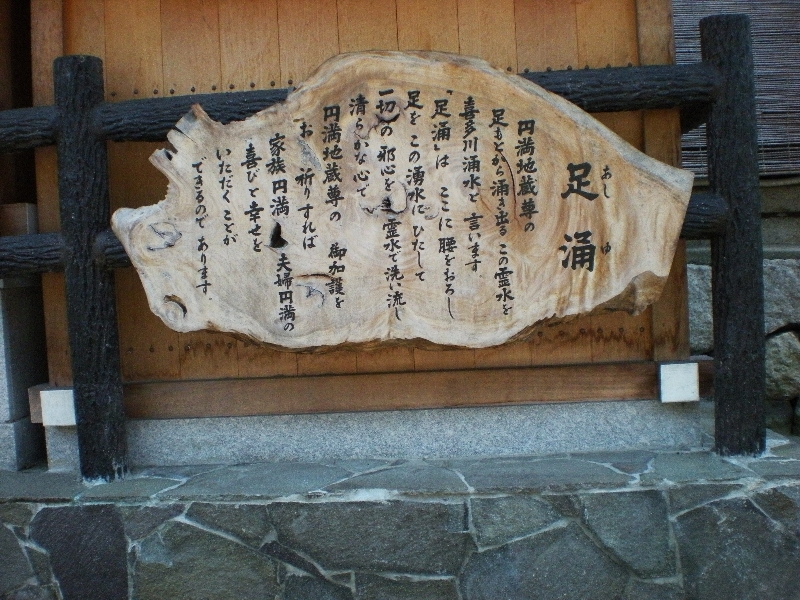 足涌
あしゆ
円満地蔵尊の
足もとから涌き出る この霊水を
喜多川涌水と 言います
「足涌」は ここに 腰をおろし
足を この湧水に ひたして
一切の 邪心を 霊水で 洗い流し
清らかな心で
円満地蔵尊の 御加護を
お祈りすれば
家族円満 夫婦円満の
喜びと幸せを
いただくことが
できるのであります